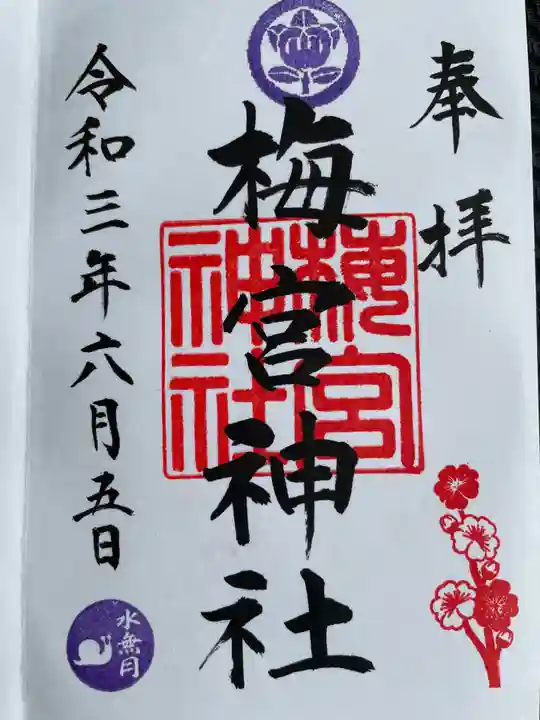 奉拝
梅宮神社
梅宮神社
令和三年六月五日
水無月